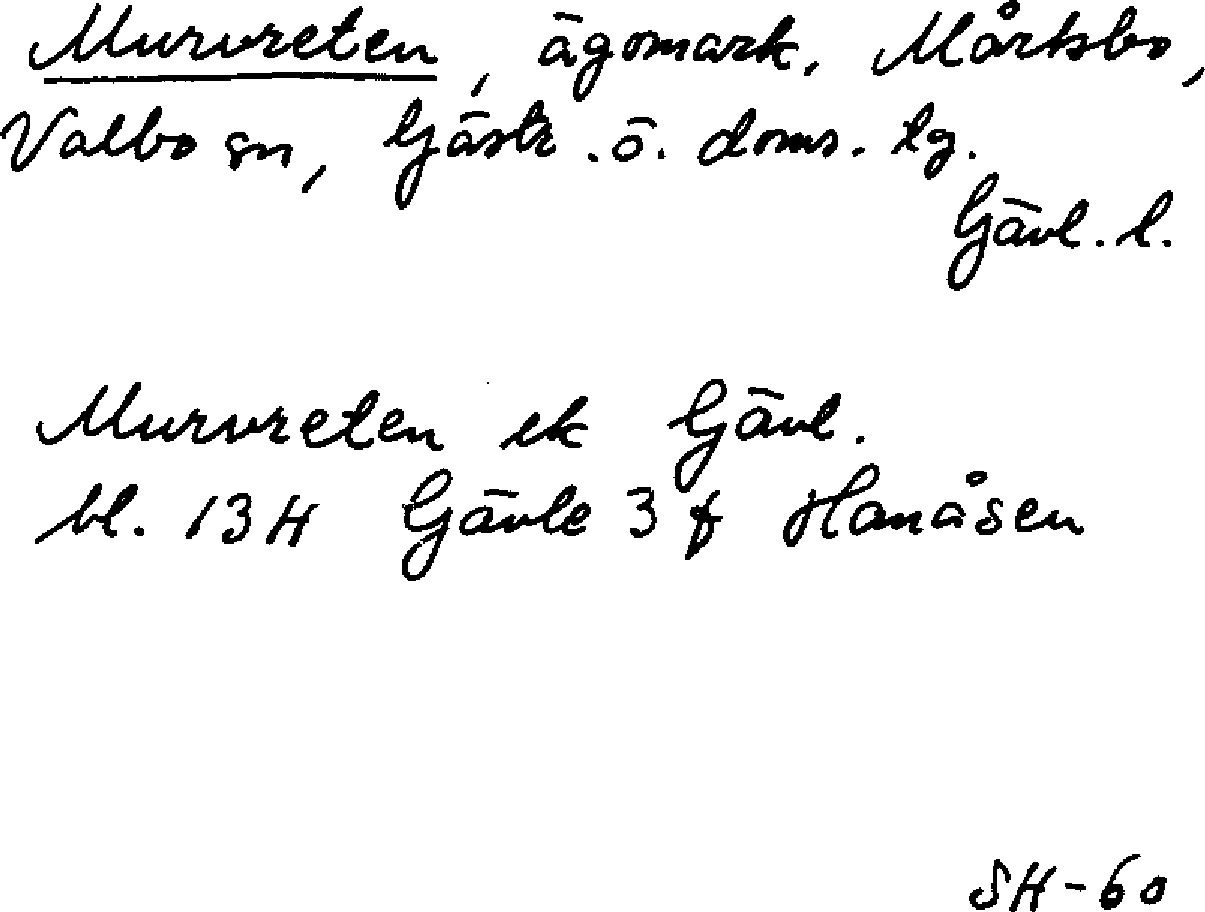 Murvreten, ägomark, Mårtsbo,
Valbo sn, Gästr. ö. doms. lg.
Gävl. l.
Murvreten ek Gävl.
bl. 13H Gävle 3 f Hanåsen
SH-60